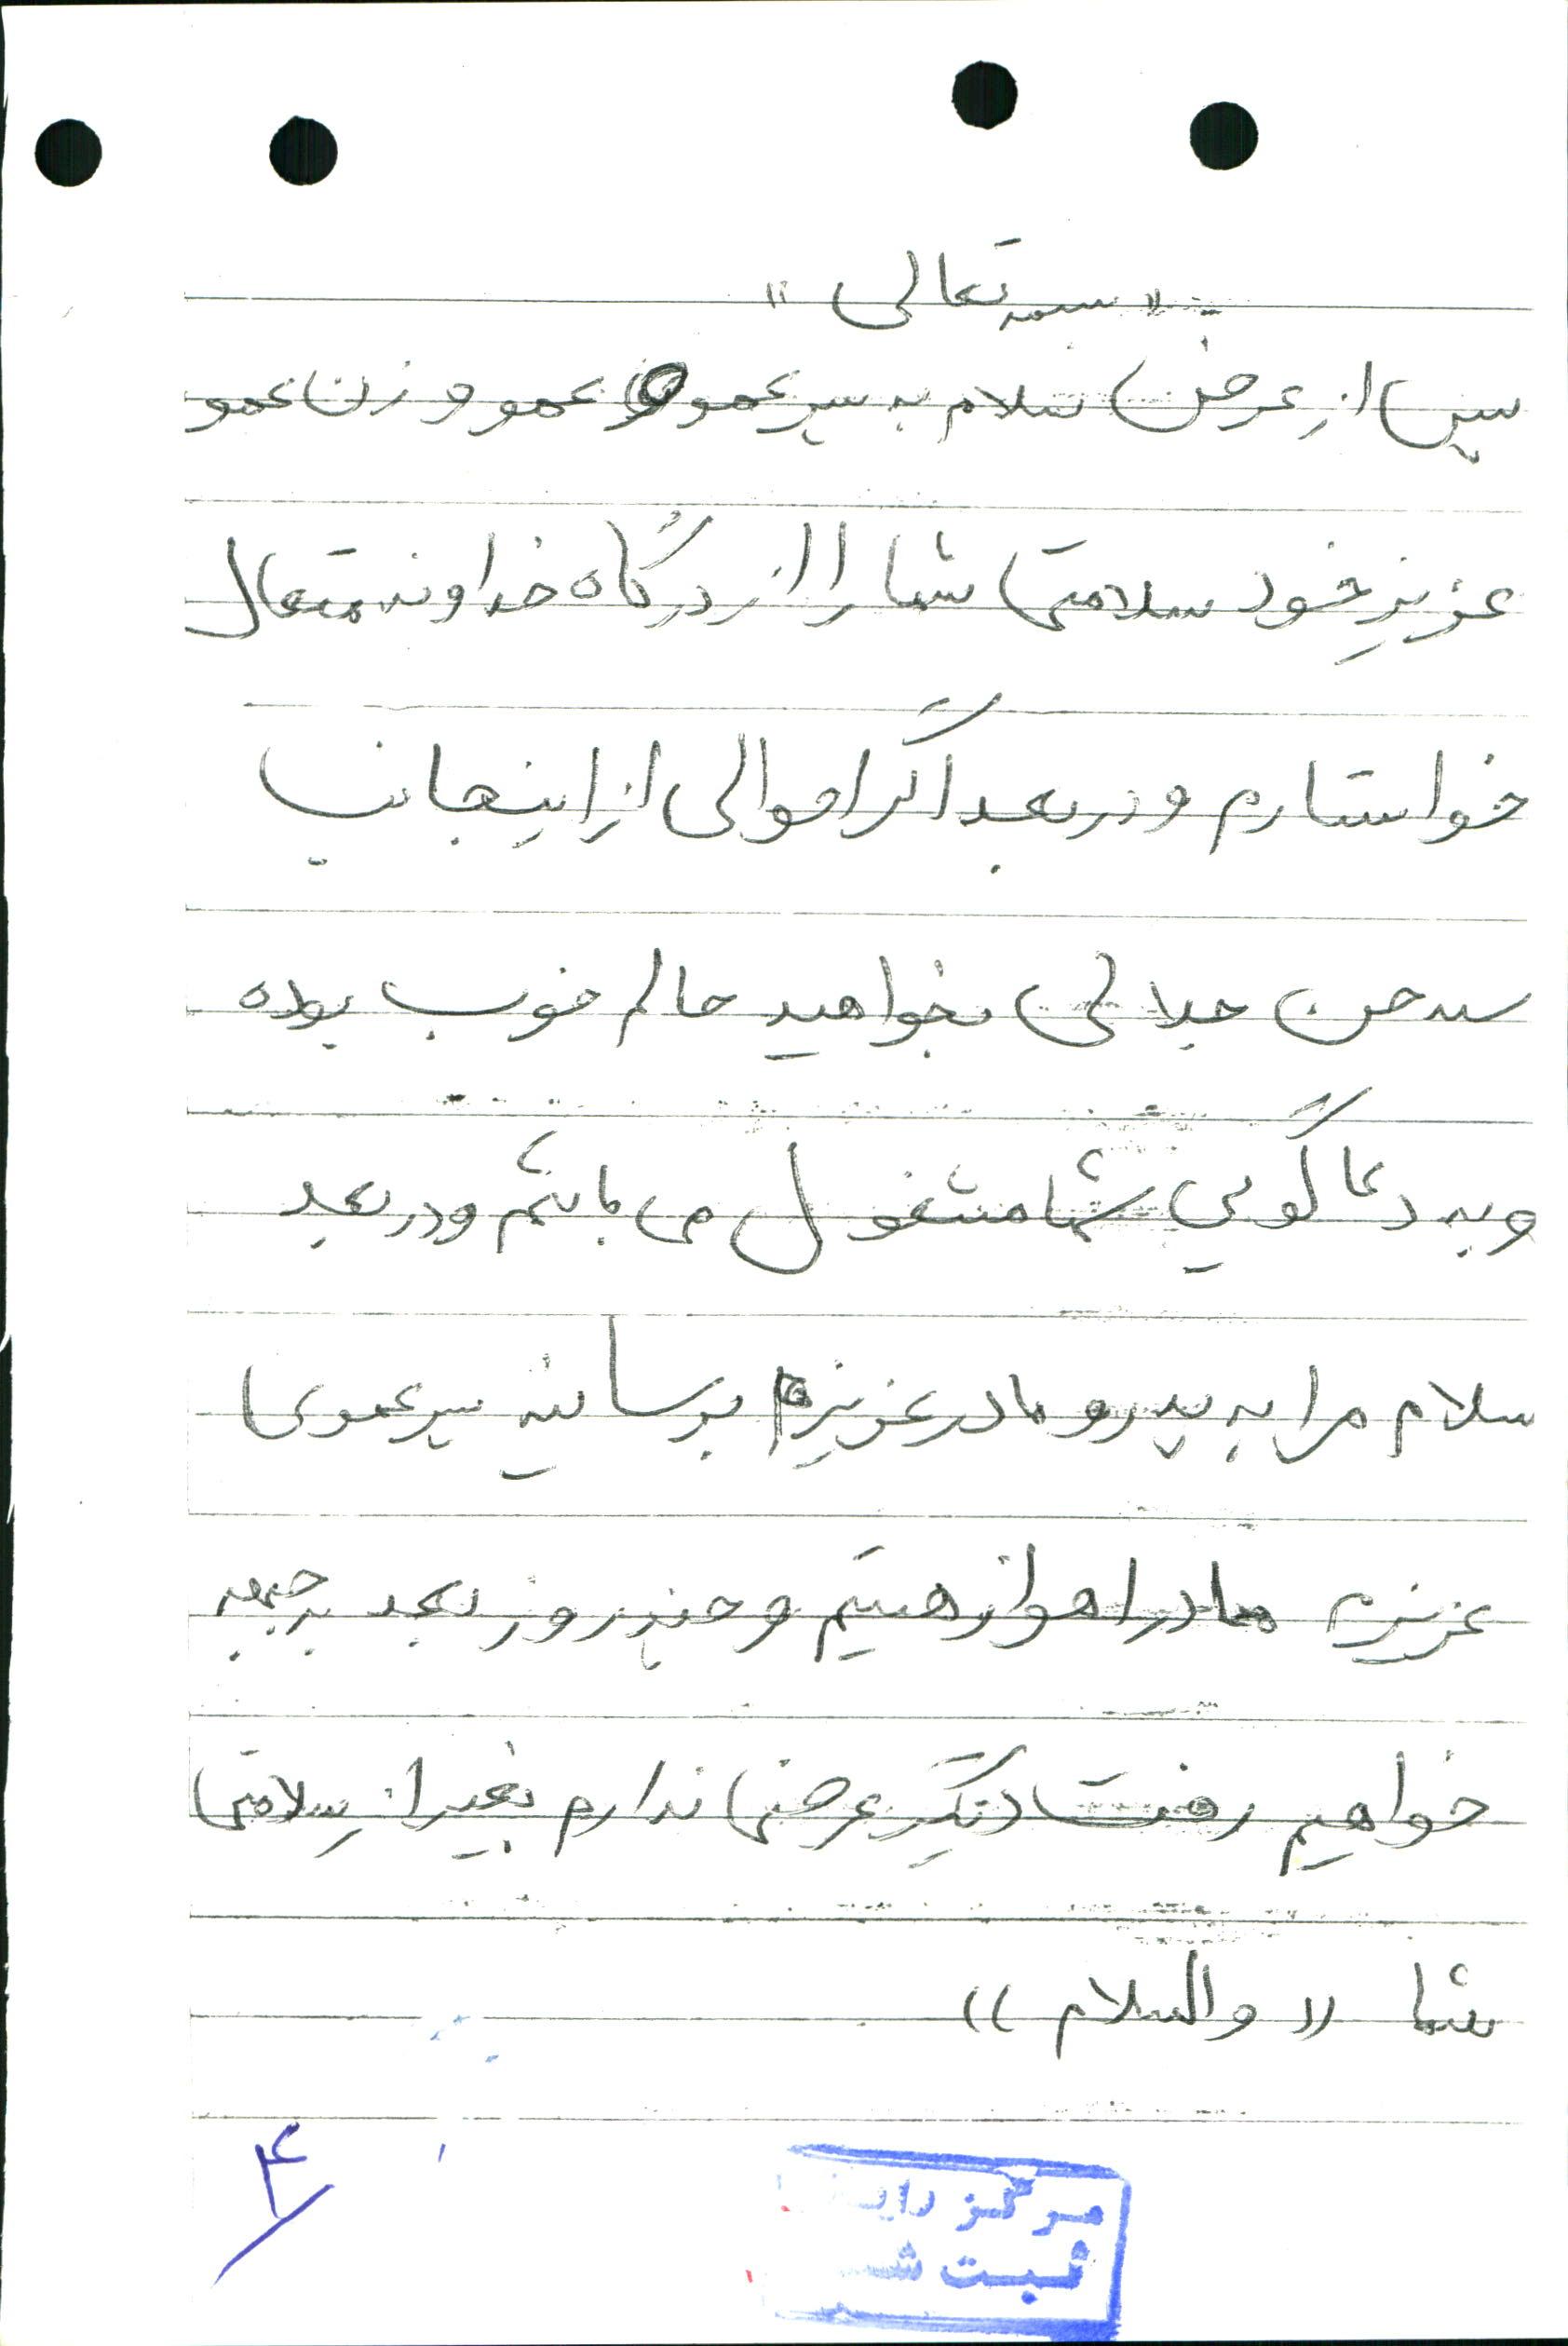 « بسمه تعالی »
پس از عرض سلام به پسرعمو و عمو و زن عمو
عزیز خود سلامتی شما را از درگاه خداوند متعال
خواستارم و در بعد اگر احوالی از اینجانب
سید حسن جلالی بخواهید حالم خوب بوده
و به دعا گویی شما مشغول می باشم و در بعد
سلام مرا به پدر و مادر عزیزم برسانید پسرعموی
عزیزم ما در اهواز هستیم و چند روز بعد به جبهه
خواهیم رفت دیگر عرضی ندارم بغیر از سلامتی
شما « والسلام »
۴
مرکز
ثبت شد